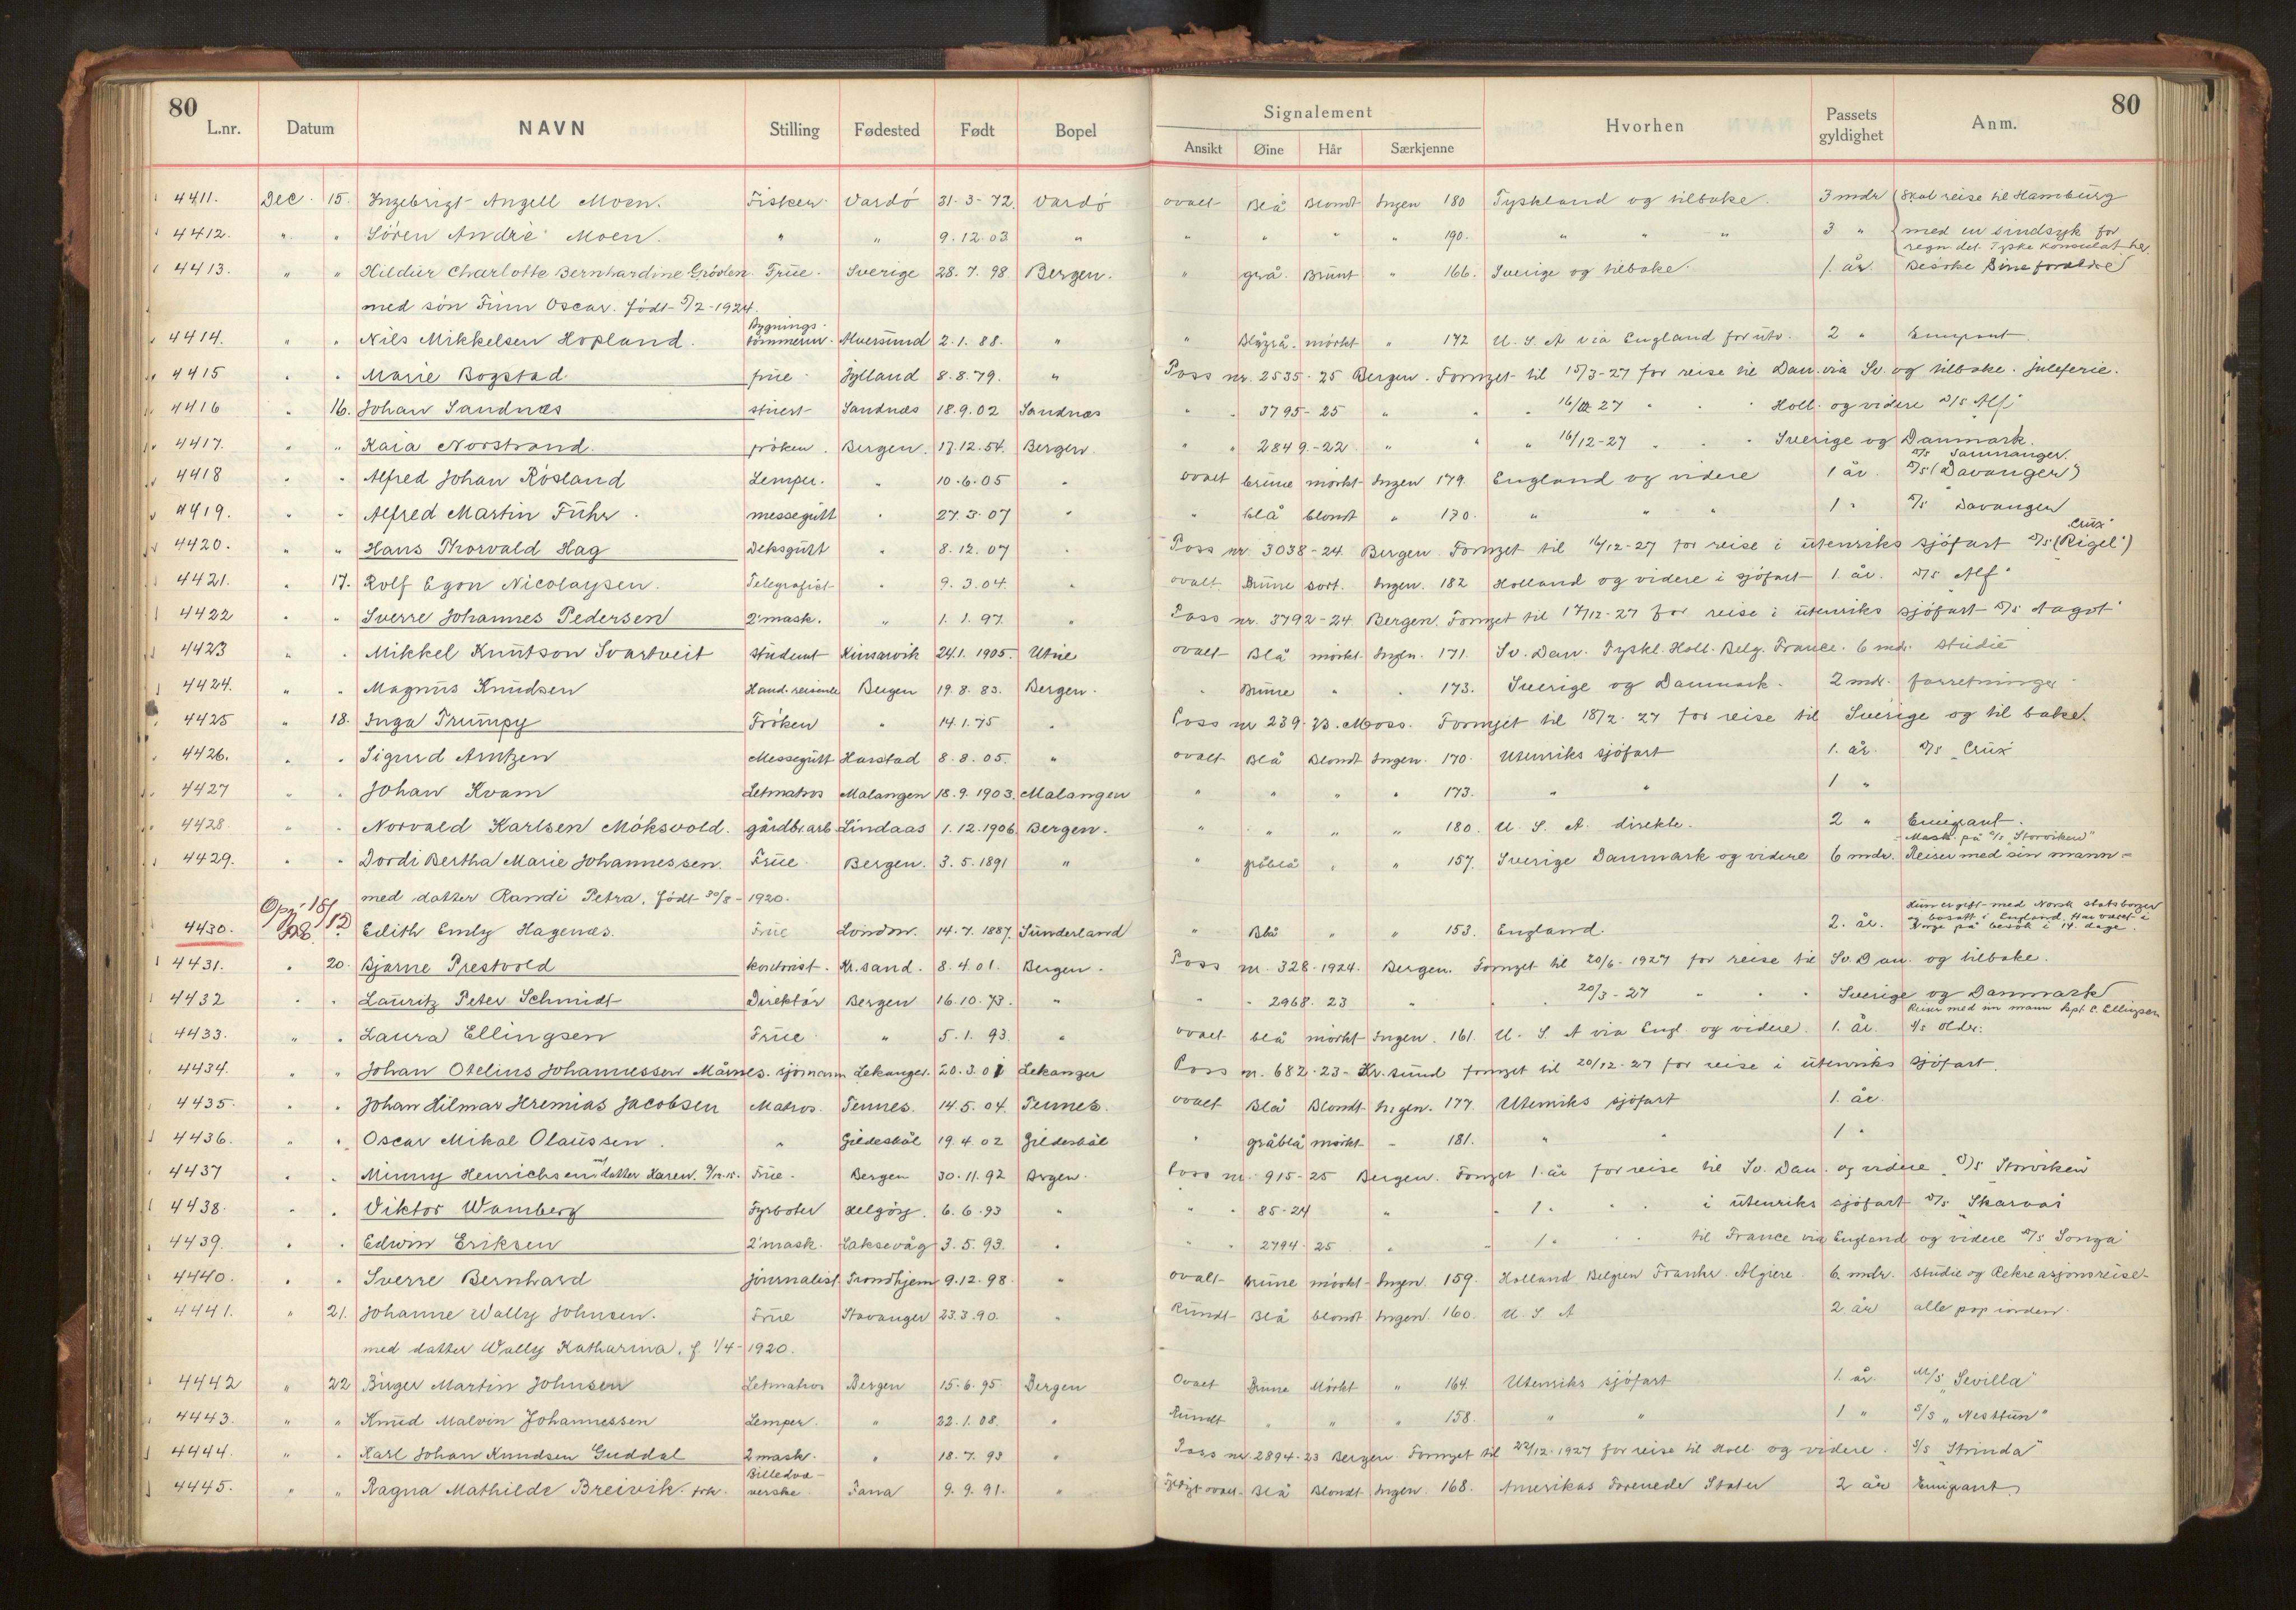 80
L.nr. Datum NAVN Stilling Fødested Født Bopel
Signalement Hvorhen Passets gyldighet Anm. 80
Ansikt Øine Hår Særkjenne
4411. Dec. 15. Ingebrigt Angell Moen. Fisker. Vardö 31-3-72. Vardö ovalt Blå Blondt Ingen 180 Tyskland og tilbake. 3 mdr Skal reise til Hamburg
4412. " " Sören Andrè Moen. " " 9.12.03 " " " " " 190. " " " 3 " med en sindsyk for
regn. det Tyske Konsulat her
4413. " " Hildur Charlotte Bernhardine Grövlen. Frue. Sverige 28.7.98 Bergen. " grå. Brunt " 166. Sverige og tilbake. 1. år. Besöke Sine foreldre
med sön Finn Oscar. födt 5/2-1924.
4414. " " Nils Mikkelsen Hopland. Bygnings-
tömmerm. Alversund 2.1.88. " " Blågrå. mörkt " 172 U.S.A via England for utv. 2 " Emigrant.
4415 " " Marie Bogstad. frue. Jylland 8.8.79. " Pass nr. 2535-25 Bergen. Fornyet til 15/3-27 for reise til Dan. via Sv. og tilbake. juleferie.
4416 " 16. Johan Sandnæs stuert Sandnæs 18.9.02 Sandnæs " " 3795-25 " " " 16/12 27 " " " Holl. og videre D/S Alf"
4417. " " Kaia Norstrand. fröken. Bergen. 17.12.54. Bergen. " " 2849-22 " " " 16/12-27 " " " Sverige og Danmark.
4418 " " Alfred Johan Rösland Lemper. " 10.6.05 " ovalt brune mörkt Ingen 179. England og videre 1 år D/S Samnanger.
D/S (Davanger)
4419. " " Alfred Martin Führ. messegutt " 27.3.07 " " blå blondt " 170. " " " 1 " D/S Davanger
4420. " " Hans Thorvald Hag Deksgutt " 8.12.07 " Pass nr. 3038-24 Bergen. Fornyet til 16/12-27 for reise i utenriks sjöfart D/S (Rigel") Crux"
4421. " 17. Rolf Egon Nicolaysen. Telegrafist " 9.3.04. " ovalt Brune sort. Ingen. 182 Holland og videre i sjöfart 1. år. D/S Alf"
4422 " " Sverre Johannes Pedersen 2'mask. " 1.1.97. " Pass nr. 3792-24 Bergen. Fornyet til 17/12-27 for reise i utenriks sjöfart D/S Aagot"
4423 " " Mikkel Knutson Svartveit student Kinsarvik 24.1.1905. Utne ovalt Blå mörkt Ingen. 171. Sv. Dan. Tyskl. Holl. Belg. France. 6 mdr. studie
4424. " " Magnus Knudsen Hand.reisende Bergen 19.8.83. Bergen. " Brune " " 173. Sverige og Danmark. 2 mdr. forretninger
4425 " 18. Inga Trumpy Fröken " 14.1.75 " Pass nr 239-23. Moss. Fornyet til 18/2-27 for reise til Sverige og til bake.
4426. " " Sigurd Arntzen Messegutt Harstad 8.8.05. " ovalt Blå Blondt Ingen. 170. Utenriks sjöfart 1. år. D/S "Crux"
4427 " " Johan Kvam Letmatros Malangen 18.9.1903. Malangen " " " " 173. " " 1 "
4428. " " Norvald Karlsen Möksvold. gårdbr.arb Lindaas 1.12.1906 Bergen. " " " " 180. U. S. A. direkte. 2 " Emigrant.
4429. " " Dordi Bertha Marie Johannessen. Frue. Bergen. 3.5.1891 " " gråblå " " 157. Sverige Danmark og videre 6 mdr. Mask. på D/S "Storviken"
Reiser med sin mann
med datter Randi Petra. födt 30/8-1920.
4430. 18/12 Edith Emly Hagenæs. Frue London. 14.7.1887. Sunderland " Blå " " 153. England. 2. år. Hun er gift med Norsk statsborger
og bosatt i England. Har været i
Norge på besök i 14. dage.
4431. " 20. Bjarne Prestvold kontorist. Kr.sand. 8.4.01. Bergen. Pass nr. 328-1924. Bergen. Fornyet til 20/6-1927 for reise til Sv. Dan. og tilbake.
4432 " " Lauritz Peter Schmidt Direktör Bergen 16.10.73. " " " 2968-23 " " " 20/3-27 " " " Sverige og Danmark
4433. " " Laura Ellingsen Frue. " 5.1.93. " ovalt blå mörkt Ingen. 161. U. S. A via Engl. og videre. 1. år. Reiser med sin mann kpt. E. Ellingsen
4434. " " Johan Otelius Johannessen Månes. sjömann Lekanger. 20.3.01 Lekanger Pass nr. 682-23- Kr.sund fornyet til 20/12-27 for reise i utenriks sjöfart.
4435. " " Johan Hilmar Hremias Jacobsen Matros. Tennes. 14.5.04. Tennes. ovalt Blå Blondt Ingen. 177. Utenriks sjöfart 1. år.
4436. " " Oscar Mikal Olaussen. " Gildeskål 19.4.02 Gildeskål " gråblå mörkt - 181. " " 1 "
4437 " " Minny Henrichsen datter Karen. Frue. Bergen 30.11.92 Bergen. Pass nr. 915-25 Bergen. Fornyet 1. år for reise til Sv. Dan. og videre. D/S Storviken
4438. " " Viktor Wamberg Fyrböter Helgöy. 6.6.93 " " " 85-24 " " 1. " " i utenriks sjöfart D/S "Skarvas
4439. " " Edwin Eriksen 2'mask. Laksevåg 3.5.93. " " " 2794-25 " " 1. " " til France via England og videre D/S "Songa"
4440. " " Sverre Bernhard journalist Trondhjem 9.12.98. " ovalt brune mörkt Ingen. 159. Holland Belgien Frankr. Algiere 6. mdr. studie og Rekreasjonsreise
4441. " 21. Johanne Wally Johnsen. Frue Stavanger 23.3.90. " Rundt Blå blondt Ingen. 160. U. S. A 2. år alle pap iorden.
med datter Wally Katharina. f. 1/4-1920.
4442 " 22 Birger Martin Johnsen Letmatros Bergen 15.6.95. Bergen Ovalt Brune Mörkt " 164. Utenriks sjöfart 1. år. M/S "Sevilla"
4443. " " Knud Malvin Johannessen Lemper. " 22.1.08. " Rundt " " " 158. " " 1 " S/S "Nesttun"
4444. " " Karl Johan Knudsen Guddal 2 mask. " 18.7.93 " Pass nr. 2894-23 Bergen Fornyet til 22/12-1927 for reise til Holl. og videre. S/S "Strinda"
4445. " " Ragna Mathilde Breivik. frk. Billedvæ-
verske. Fana 9.9.91. " ovalt Blå Blondt Ingen. 168. Amerikas Forenede Stater 2 år Emigrant.